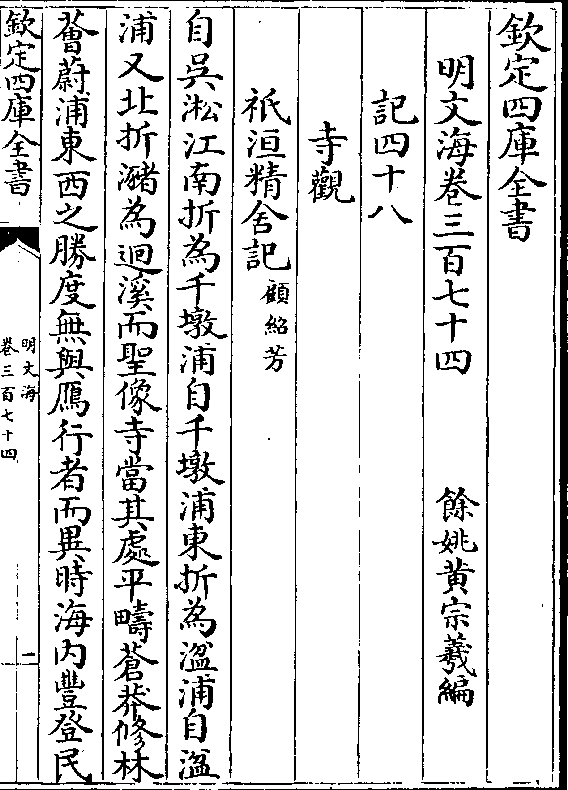 欽定四庫全書
明文海卷三百七十四 餘姚黄宗羲編
記四十八
寺觀
祇洹精舍記 顧紹芳
自吳淞江南折為千墩浦自千墩浦東折為溋浦自溋
浦又北折瀦為迴溪而聖像寺當其處平疇蒼莽修林
薈蔚浦東西之勝度無與鴈行者而異時海内豐登民
欽定四庫全書
明文海
卷三百七十四
一